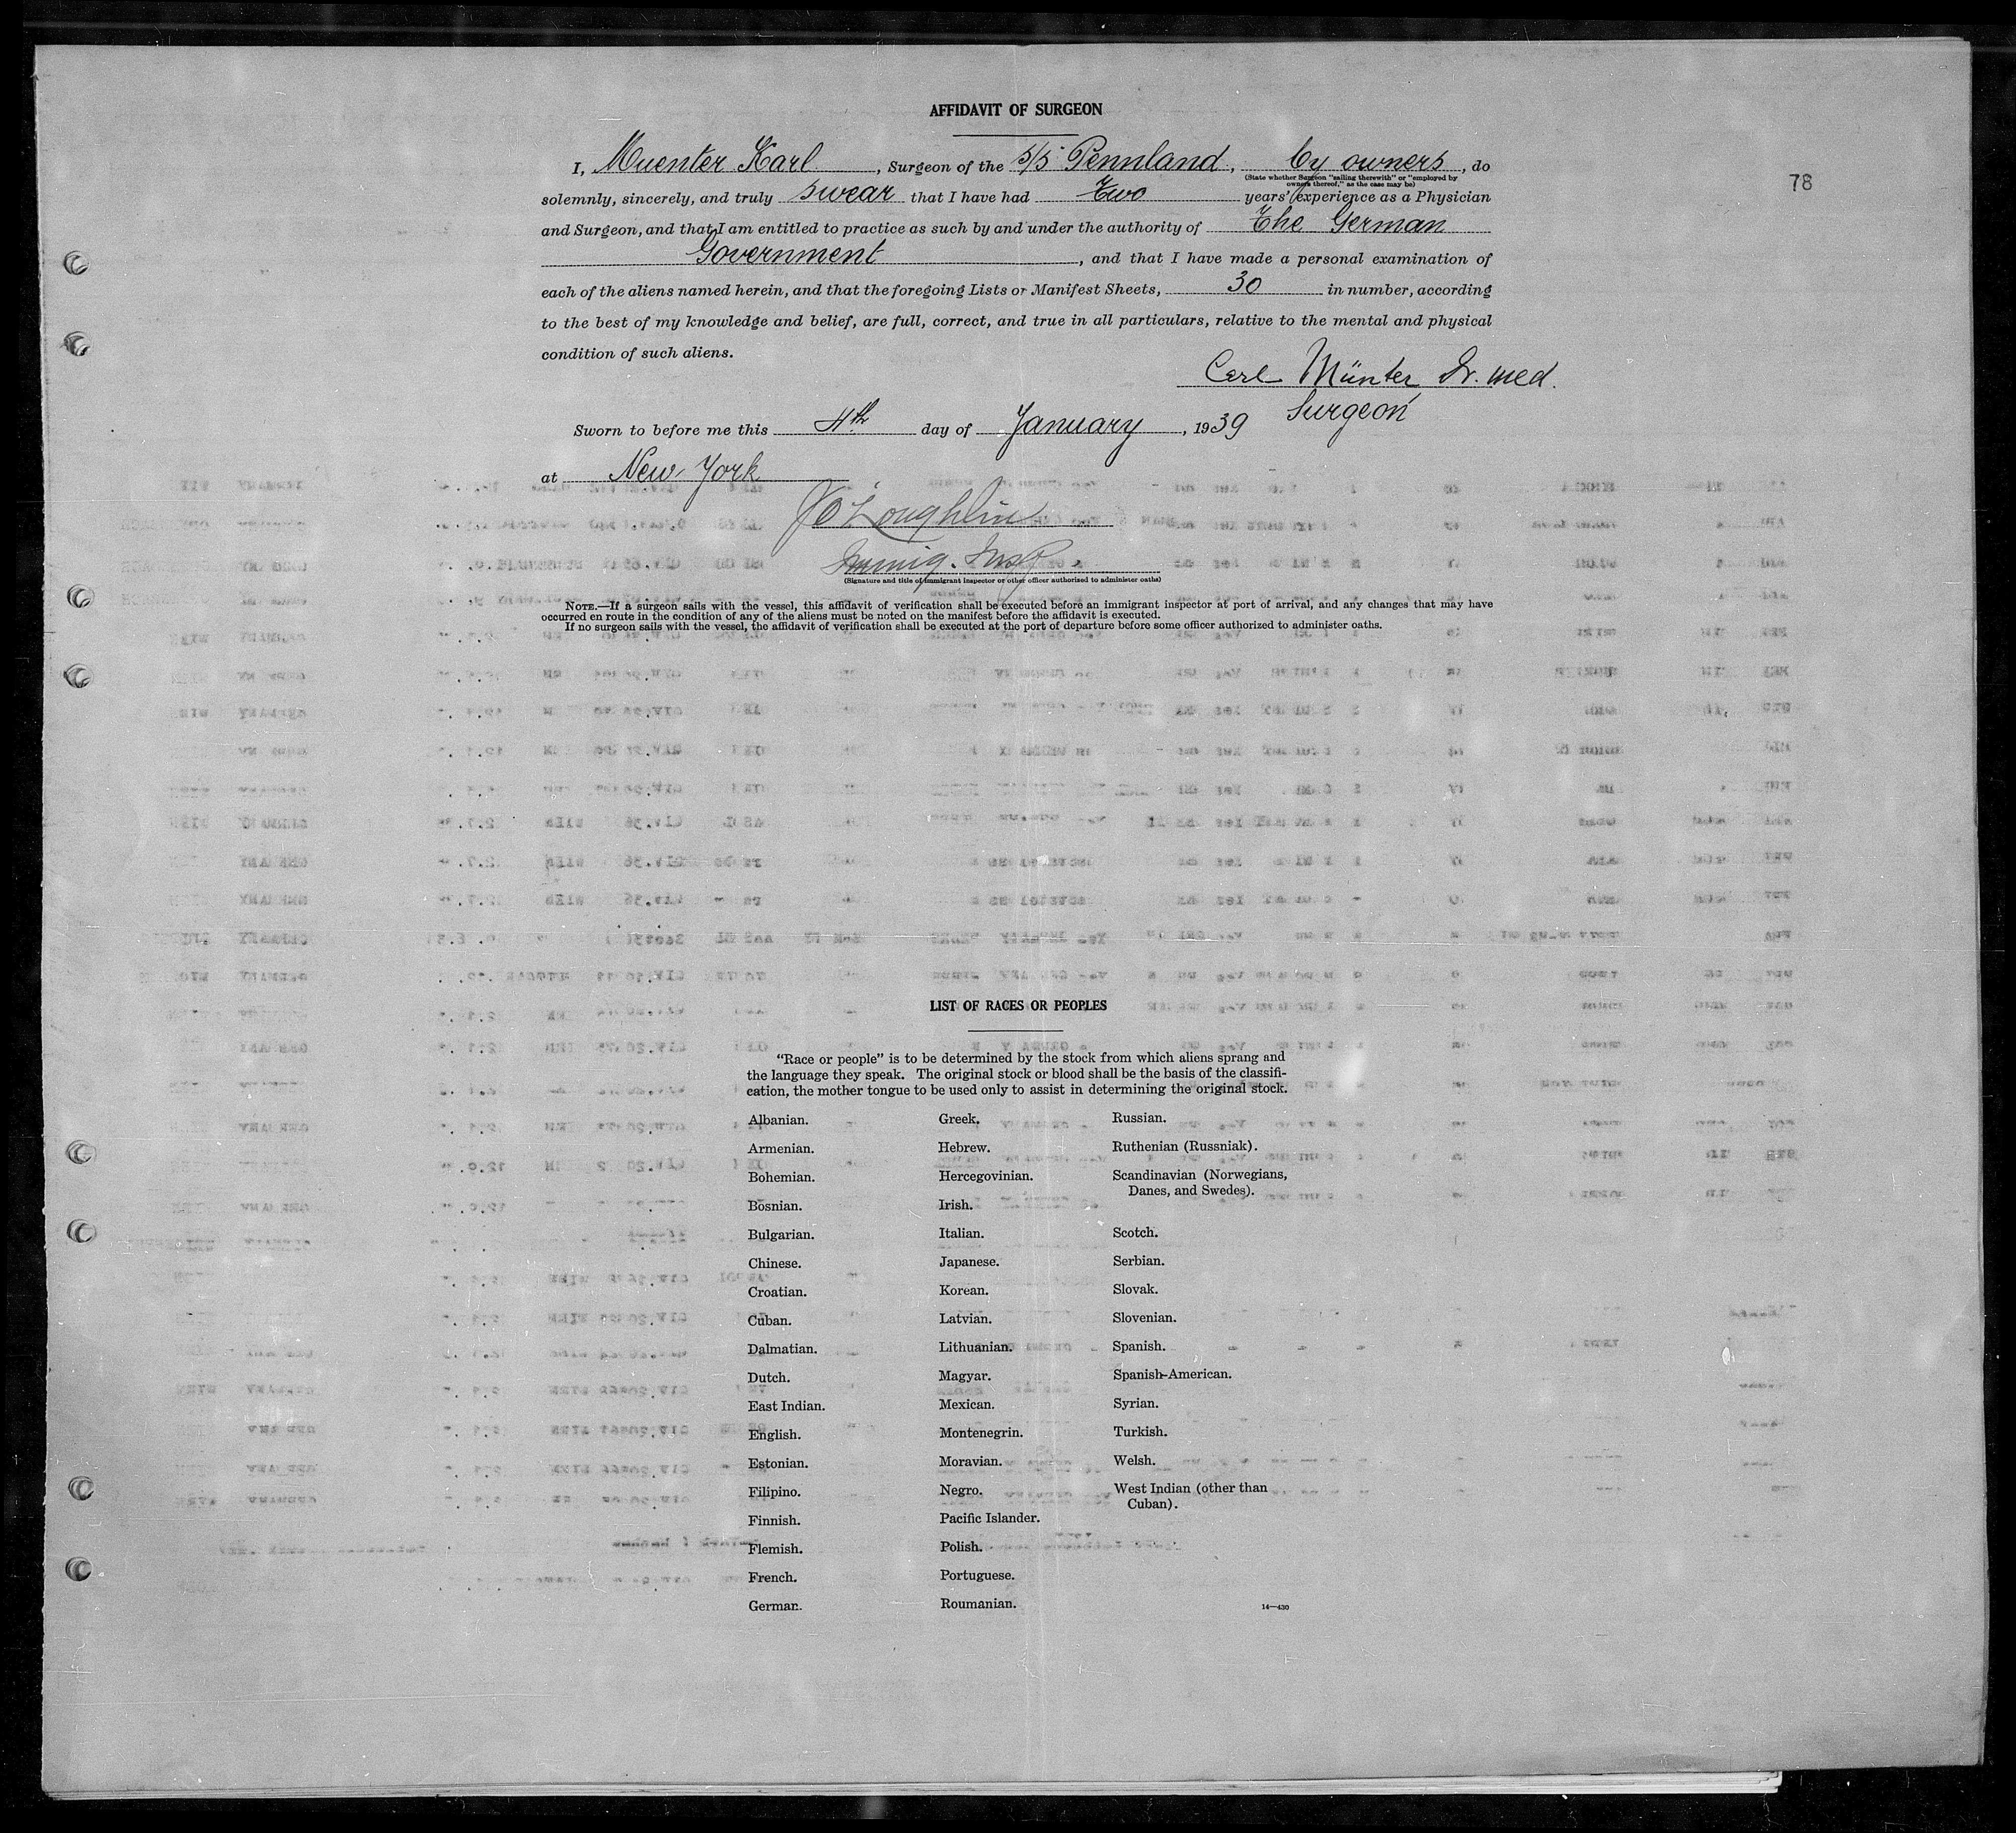 AFFIDAVIT OF SURGEON
78
I, Muenter Karl, Surgeon of the S/S Pennland, by owners, do
(State whether Surgeon "sailing therewith" or "employed by
owners thereof," as the case may be)
solemnly, sincerely, and truly swear that I have had Two years' experience as a Physician
and Surgeon, and that I am entitled to practice as such by and under the authority of The German
Government, and that I have made a personal examination of
each of the aliens named herein, and that the foregoing Lists or Manifest Sheets, 30 in number, according
to the best of my knowledge and belief, are full, correct, and true in all particulars, relative to the mental and physical
condition of such aliens.
Carl Münter Dr. med.
Surgeon
Sworn to before me this 4th day of January, 1939
at New York
J O'Loughlin
Immig. Insp.
(Signature and title of immigrant inspector or other officer authorized to administer oaths)
NOTE.—If a surgeon sails with the vessel, this affidavit of verification shall be executed before an immigrant inspector at port of arrival, and any changes that may have
occurred en route in the condition of any of the aliens must be noted on the manifest before the affidavit is executed.
If no surgeon sails with the vessel, the affidavit of verification shall be executed at the port of departure before some officer authorized to administer oaths.
LIST OF RACES OR PEOPLES
"Race or people" is to be determined by the stock from which aliens sprang and
the language they speak. The original stock or blood shall be the basis of the classifi-
cation, the mother tongue to be used only to assist in determining the original stock.
Albanian.
Armenian.
Bohemian.
Bosnian.
Bulgarian.
Chinese.
Croatian.
Cuban.
Dalmatian.
Dutch.
East Indian.
English.
Estonian.
Filipino.
Finnish.
Flemish.
French.
German.
Greek.
Hebrew.
Hercegovinian.
Irish.
Italian.
Japanese.
Korean.
Latvian.
Lithuanian.
Magyar.
Mexican.
Montenegrin.
Moravian.
Negro.
Pacific Islander.
Polish.
Portuguese.
Roumanian.
Russian.
Ruthenian (Russniak).
Scandinavian (Norwegians,
Danes, and Swedes).
Scotch.
Serbian.
Slovak.
Slovenian.
Spanish.
Spanish-American.
Syrian.
Turkish.
Welsh.
West Indian (other than
Cuban).
14—430